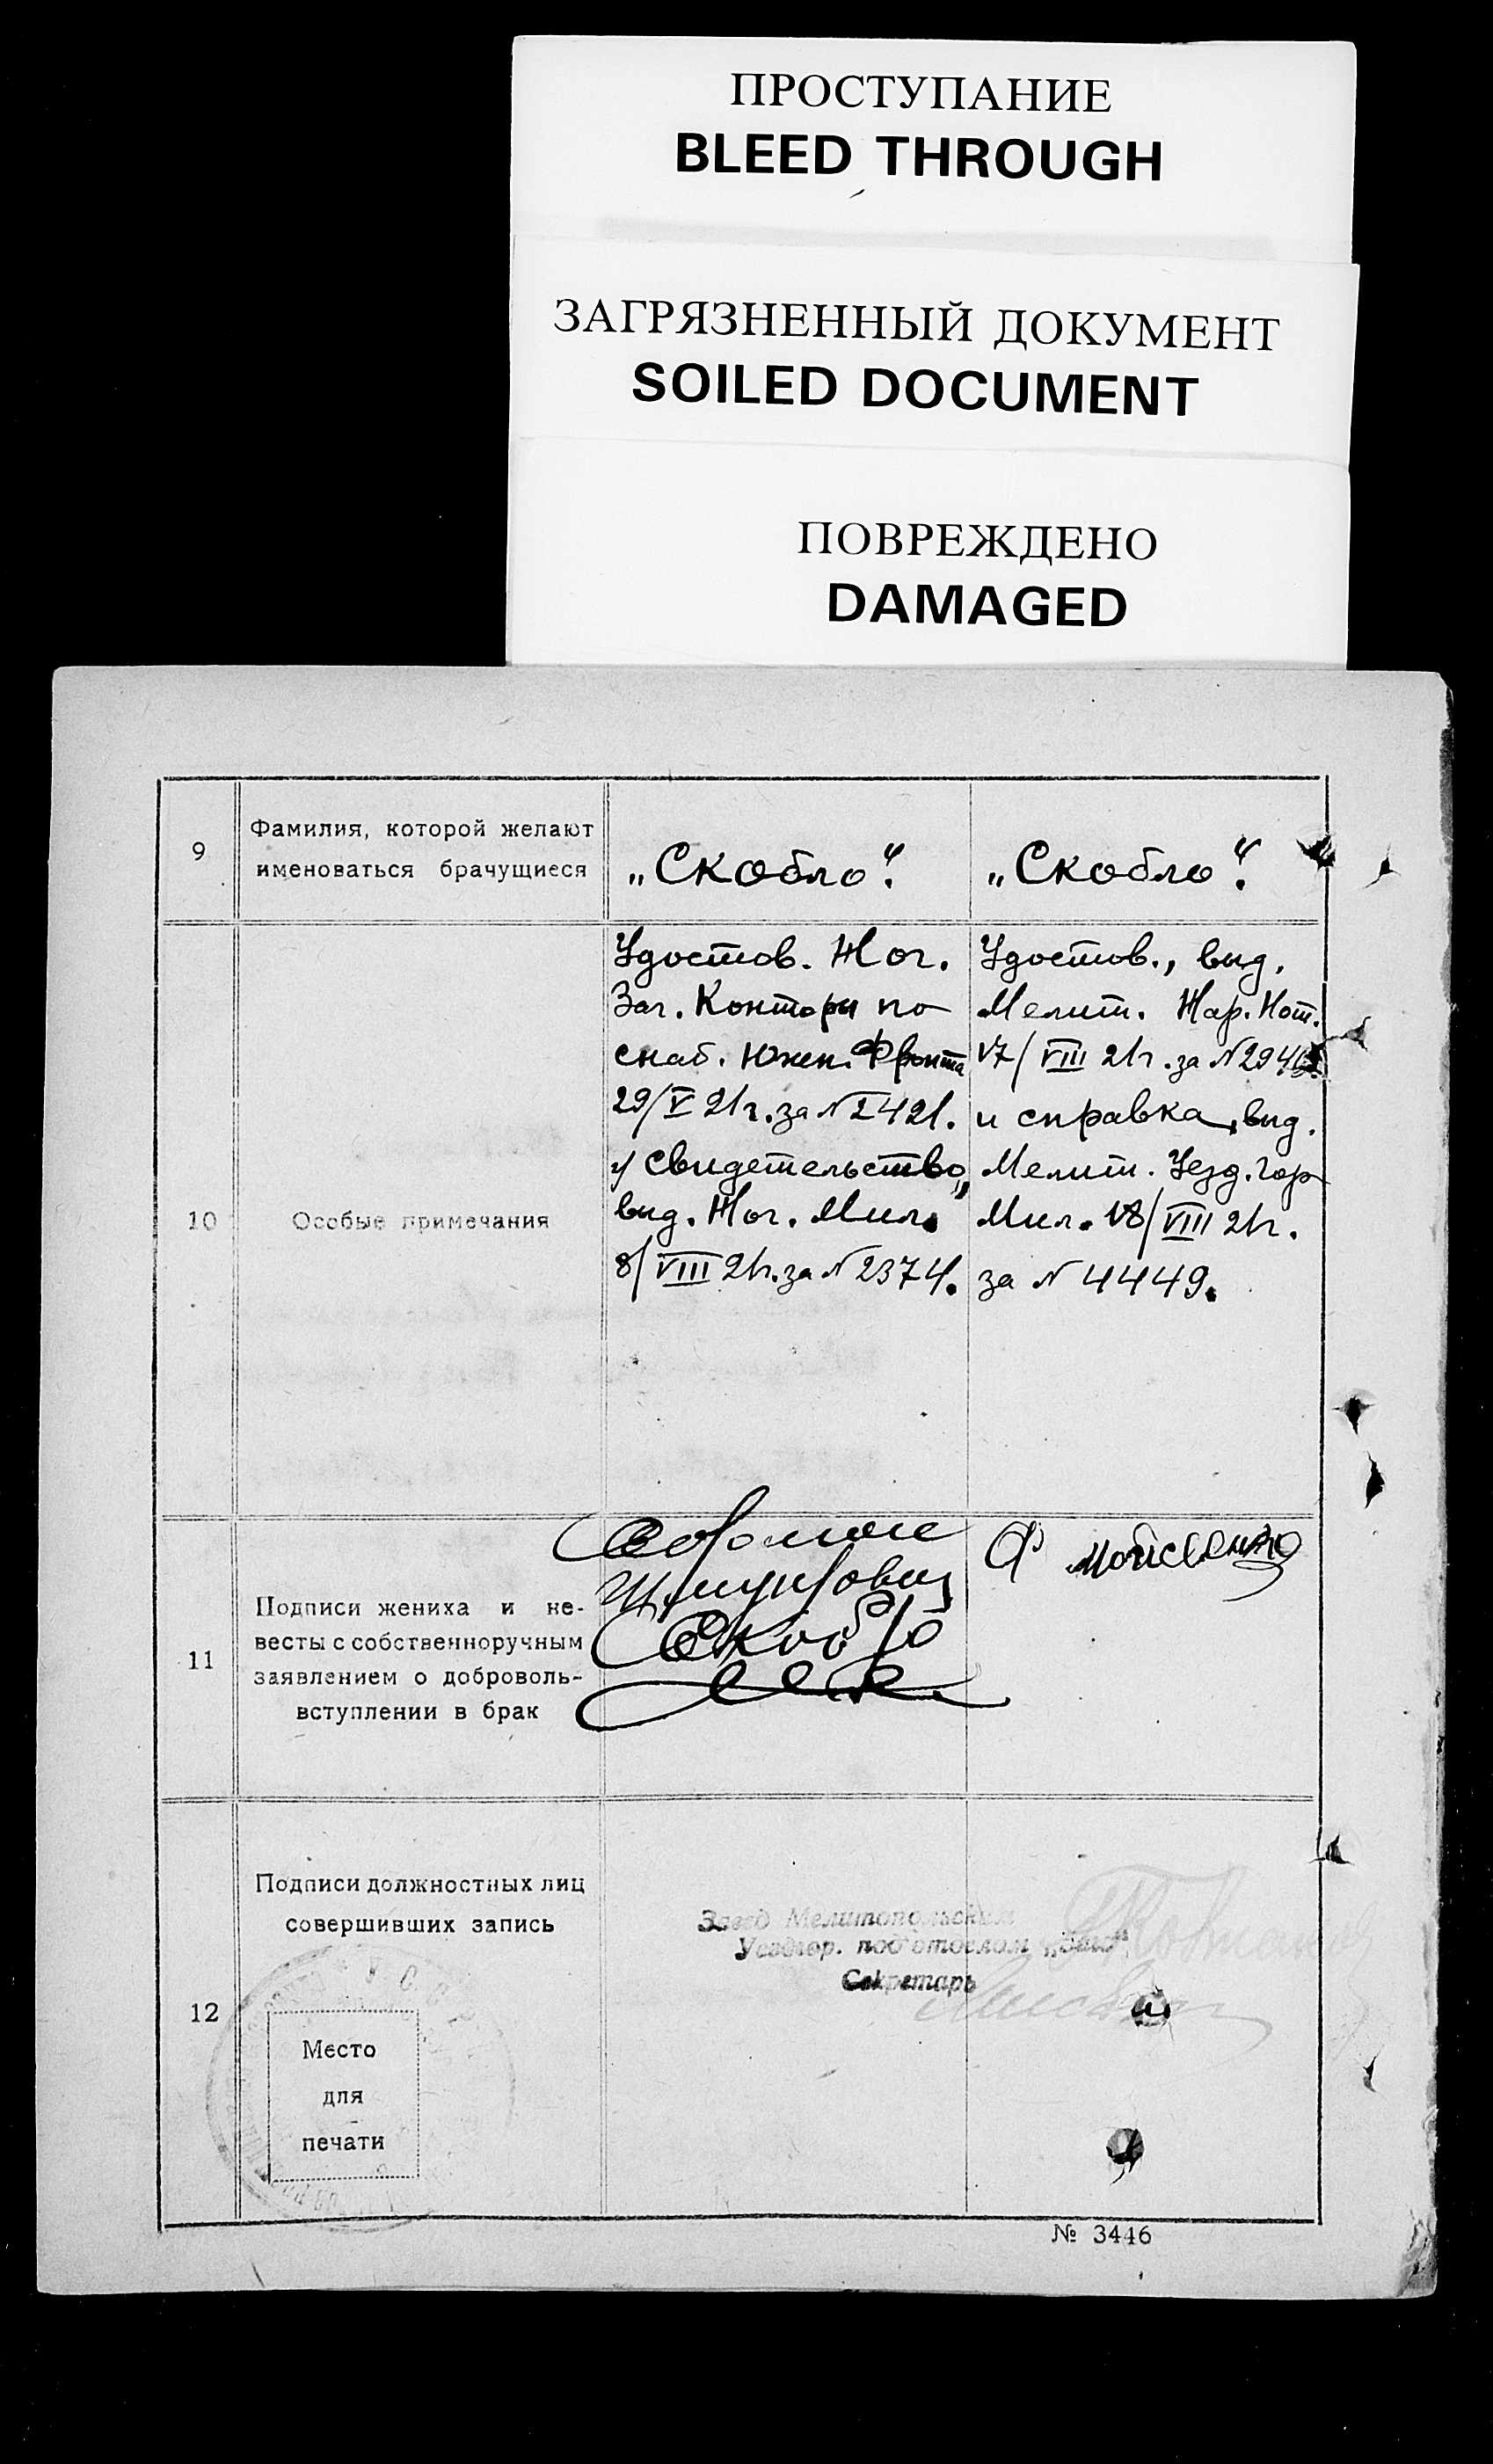 ПРОСТУПАНИЕ
BLEED THROUGH
ЗАГРЯЗНЕННЫЙ ДОКУМЕНТ
SOILED DOCUMENT
ПОВРЕЖДЕНО
DAMAGED
9
Фамилия, которой желают
именоваться брачущиеся
„Скобло".
„Скобло".
10
Особые примечания
Удостов. Ног.
Заг. Конторы по
снаб. Южн. Фронта
29/V 21г. за N 2421.
и свидетельство,
выд. Ног. Мил.
8/VIII 21г. за N 2374.
Удостов., выд.
Мелит. Нар. Нот.
17/VIII 21г. за N
и справка, выд.
Мелит. Уезд. Гор
Мил. 18/VIII 21г.
за N 4449.
11
Подписи жениха и не-
весты с собственноручным
заявлением о доброволь-
вступлении в брак
Соломон
Скобло
Ф
12
Подписи должностных лиц
совершивших запись
Место
для
печати
Завед Мелитопольским
Уездгор. подотделом „Загс"
Секретарь
№ 3446